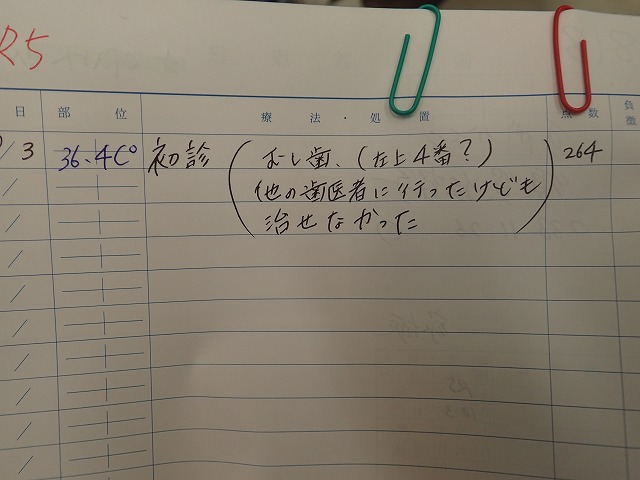 R5
日 部位 療法・処置 点数 負
/3 36.4C° 初診 むし歯、(左上4番?) 264
他の歯医者に行ったけども
治せなかった